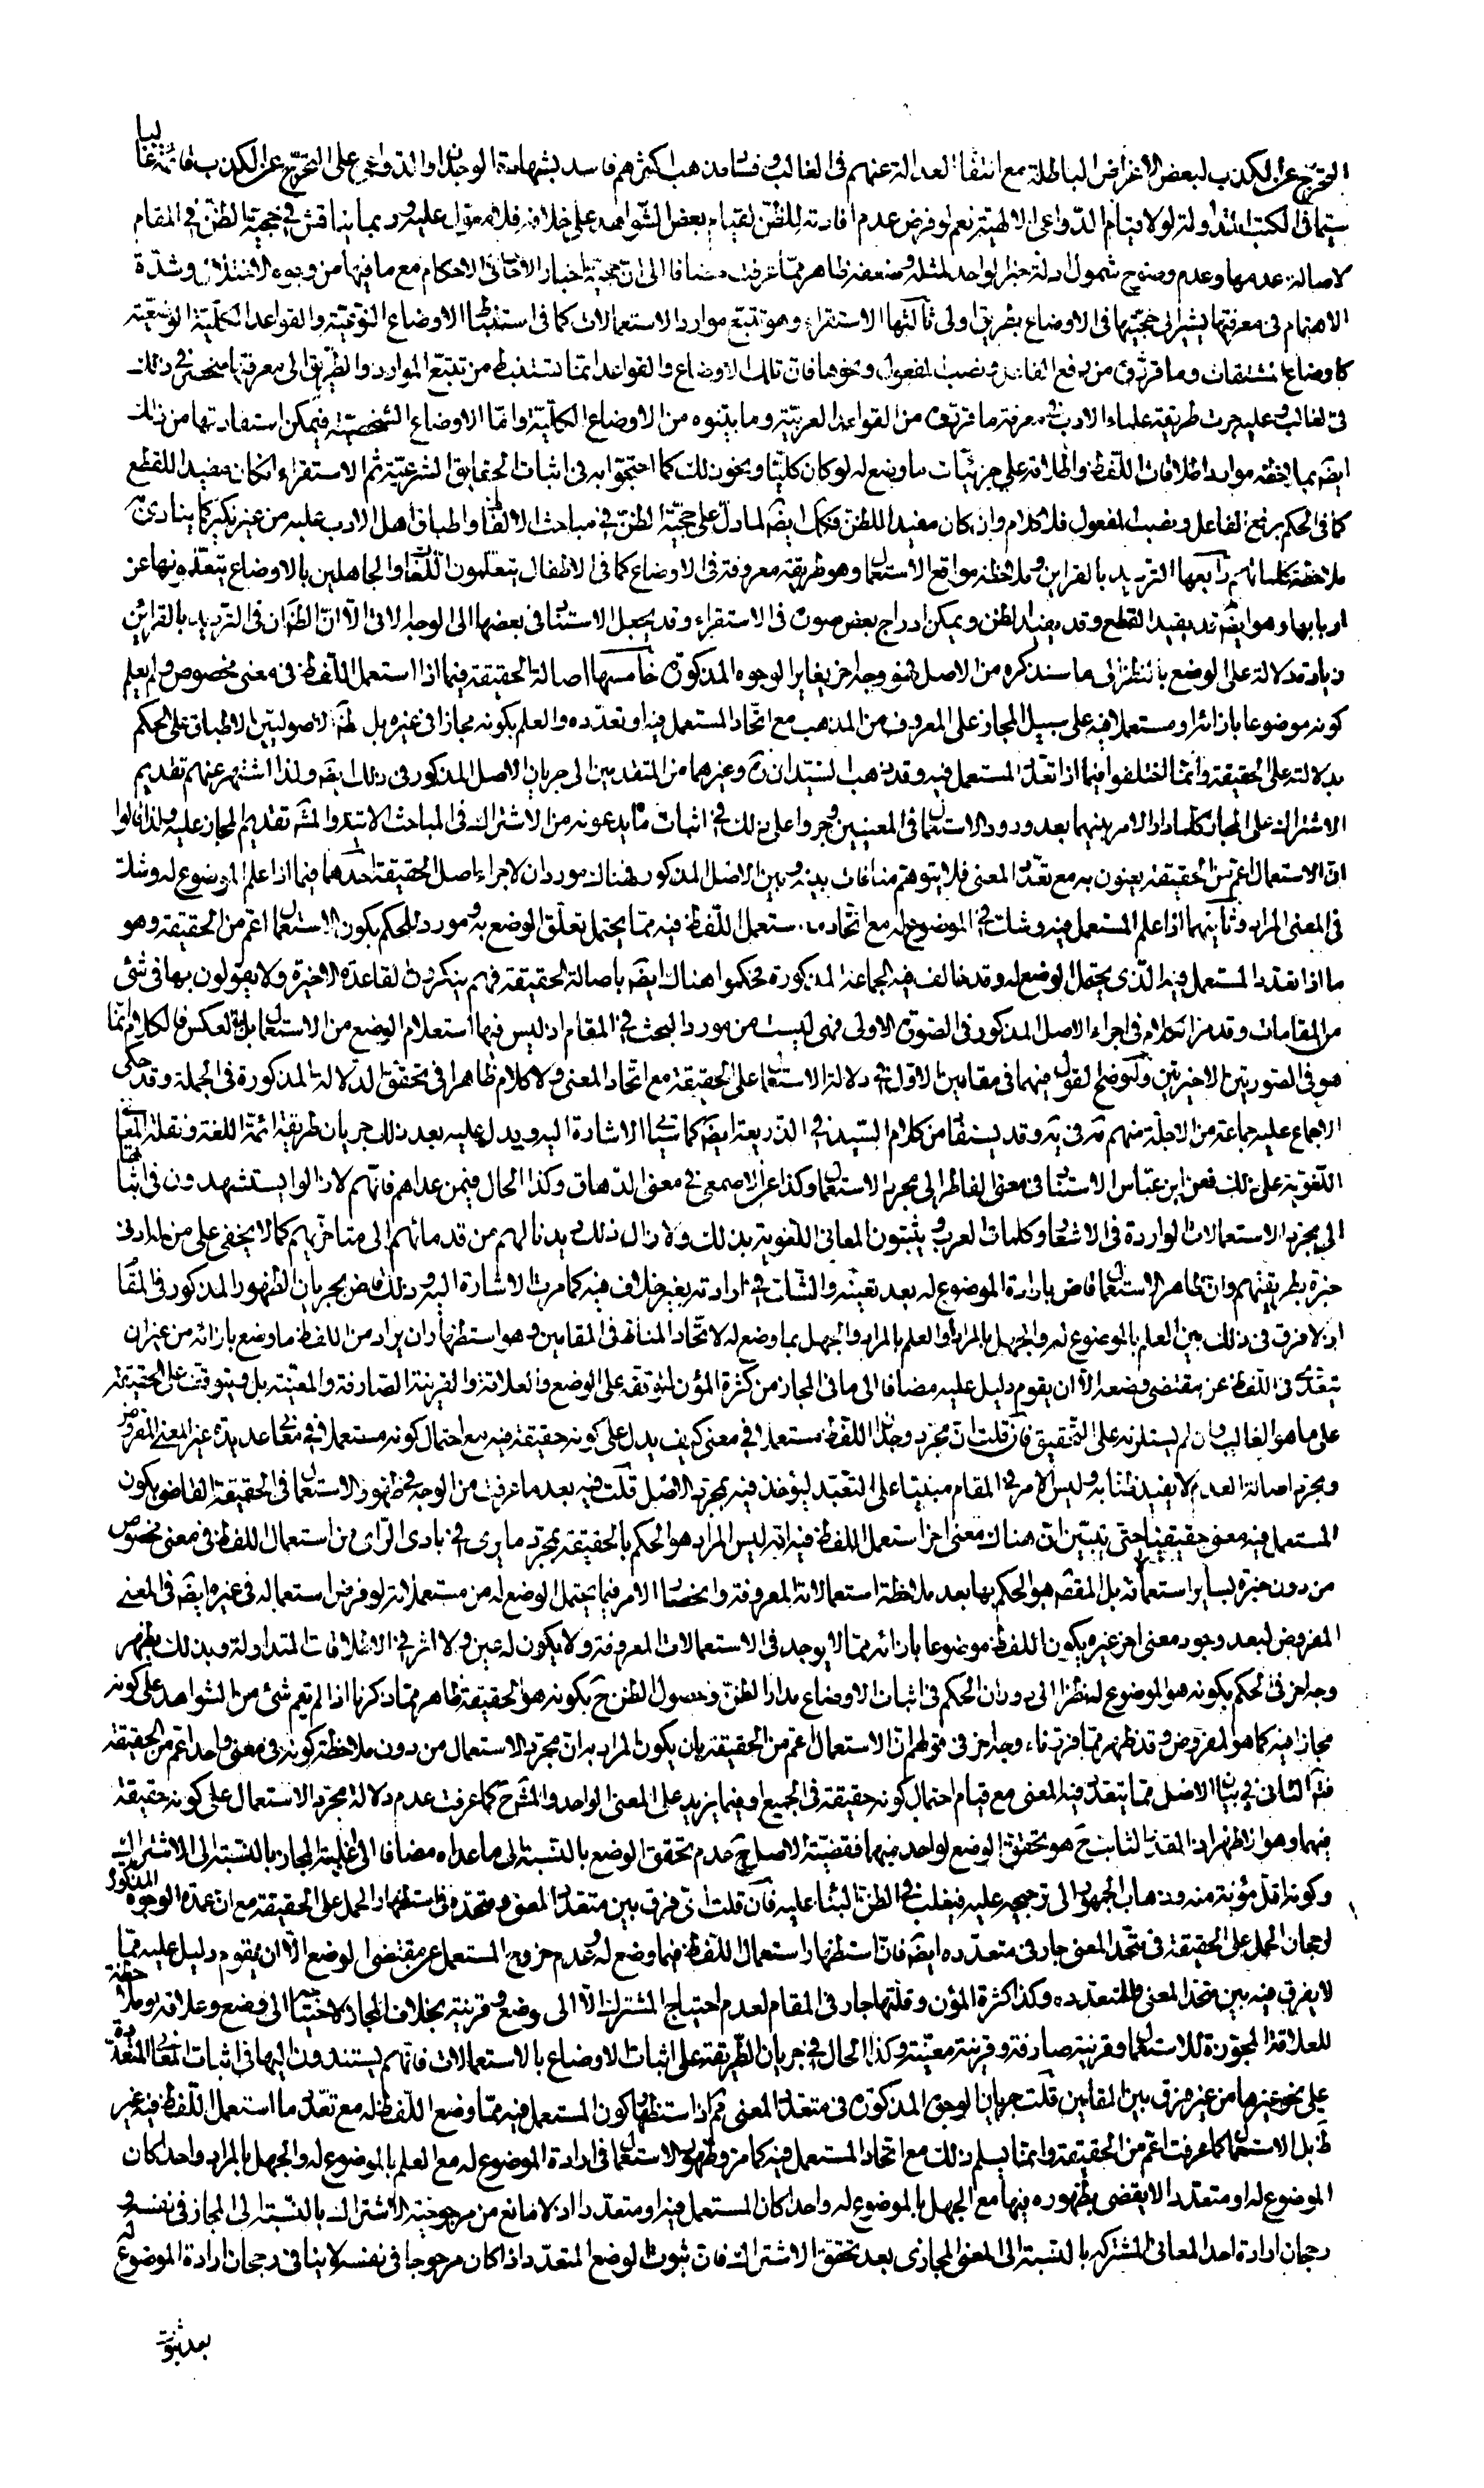 التحرّج عن الكذب لبعض الاغراض الباطلة مع انتفاء العدالة عنهم في الغالب وفساد مذهب اكثرهم فاسد بشهادة الوجدان اذ الدواعي على التحرّج عن الكذب قائمة غالبا
سيّما في الكتب المتداولة لولا قيام الدّواعي الالهيّة نعم لو فرض عدم افادته للظنّ لقيام بعض الشّواهد على خلافه فلا معوّل عليه وربما يناقش في حجيّة الظنّ في المقام
لاصالة عدمها وعدم وضوح شمول ادلة خبر الواحد لمثله وضعفه ظاهر ممّا عرفت مضافا الى انّ حجيّة اخبار الاحاد في الاحكام مع ما فيها من وجوه الاختلال وشدّة
الاهتمام في معرفتها يشير الى حجيّتها في الاوضاع بطريق اولى ثالثها الاستقراء وهو تتبّع موارد الاستعمالات كما في استنباط الاوضاع النوعيّة والقواعد الكلّيّة الوضعيّة
كاوضاع المشتقات وما قرّر من رفع الفاعل ونصب المفعول ونحوها فانّ تلك الاوضاع والقواعد انّما تستنبط من تتبّع الموارد والطّريق الى معرفتها منحصر في ذلك
في الغالب وعليه جرت طريقة علماء الادب في معرفة ما قرّروه من القواعد العربيّة وما بيّنوه من الاوضاع الكلّيّة وامّا الاوضاع الشّخصيّة فيمكن استفادتها من ذلك
ايضا بملاحظة موارد اطلاقات اللّفظ واطلاقه على جزئيّات ما وضع له لو كان كلّيّا ونحو ذلك كما احتجّوا به في اثبات الحقايق الشّرعيّة ثم الاستقراء ان كان مفيدا للقطع
كما في الحكم برفع الفاعل ونصب المفعول فلا كلام وان كان مفيدا للظنّ فكك ايضا لما دلّ على حجيّة الظنّ في مباحث الالفاظ واطباق اهل الادب عليه من غير نكير كما ينادي به
ملاحظة كلماتهم رابعها الترديد بالقراين وملاحظة مواقع الاستعمال وهو طريقة معروفة في الاوضاع كما في الاطفال يتعلّمون اللّغات والجاهلين بالاوضاع يتعلّمونها من
اربابها وهو ايضا قد يفيد القطع وقد يفيد الظن ويمكن ادراج بعض صوره في الاستقراء وقد يجعل الاستناد في بعضها الى الوجه الاتي الّا انّ الظّاهر ان في الترديد بالقرائن
زيادة دلالة على الوضع بالنظر الى ما سنذكره من الاصل فهو وجه اخر يغاير الوجوه المذكورة خامسها اصالة الحقيقة فيما اذا استعمل اللّفظ في معنى مخصوص ولم يعلم
كونه موضوعا بازائه او مستعملا فيه على سبيل المجاز على المعروف من المذهب مع اتّحاد المستعمل فيه او تعدّده والعلم بكونه مجازا في غيره بل ظاهر الاصوليّين الاطباق على الحكم
بدلالته على الحقيقة وانّما اختلفوا فيما اذا تعدّد المستعمل فيه وقد ذهب السّيدان وغيرهما من المتقدمين الى جريان الاصل المذكور في ذلك ايضا ولذا اشتهر عنهم تقديم
الاشتراك على المجاز كلما دار الامر بينهما بعد ورود الاستعمال في المعنيين وجروا على ذلك في اثبات ما يدعونه من الاشتراك في المباحث الاتية والمشهور تقديم المجاز عليه ولذا قالوا
انّ الاستعمال اعمّ من الحقيقة يعنون به مع تعدّد المعنى فلا يتوهم منافات بينه وبين الاصل المذكور فهناك موردان لاجراء اصل الحقيقة احدهما فيما اذا علم الموضوع له وشك
في المعنى المراد وثانيهما اذا علم المستعمل فيه وشك في الموضوع له مع اتّحاد ما استعمل اللّفظ فيه ممّا يحتمل تعلّق الوضع به ومورد للحكم بكون الاستعمال اعمّ من الحقيقة وهو
ما اذا تعدد المستعمل فيه الّذي يحتمل الوضع له وقد خالف فيه الجماعة المذكورة فحكموا هناك ايضا باصالة الحقيقة فهم ينكرون القاعدة الاخيرة ولا يقولون بها في شئ
من المقامات وقد مر الكلام في اجراء الاصل المذكور في الصّورة الاولى فهي ليست من مورد البحث في المقام اذ ليس فيها استعلام الوضع من الاستعمال بل بالعكس فالكلام انّما
هو في الصورتين الاخيرتين ولنوضح القول فيهما في مقامين الاوّل في دلالة الاستعمال على الحقيقة مع اتّحاد المعنى ولا كلام ظاهرا في تحقق الدّلالة المذكورة في الجملة وقد حكى
الاجماع عليه جماعة من الاجلّة منهم ... وقد يستفاد من كلام السّيد في الذّريعة ايضا كما ستجئ الاشارة اليه ويدلّ عليه بعد ذلك جريان طريقة ائمّة اللغة ونقلة المعاني
اللّغويّة على ذلك فعن ابن عبّاس الاستناد في معنى الفاطر الى مجرد الاستعمال وكذا عن الاصمعي في معنى الدّهاق وكذا الحال فيمن عداهم فانّهم لا زالوا يستشهدون في اثباتها
الى مجرّد الاستعمالات الواردة في الاشعار وكلمات العرب ويثبتون المعاني اللّغويّة بذلك ولا زال ذلك ديدنا لهم من قدمائهم الى متأخّريهم كما لا يخفى على من له ادنى
خبرة بطريقتهم وانّ ظاهر الاستعمال قاض بارادة الموضوع له بعد تعيّنه والشّك في ارادته بغير خلاف فيه كما مرت الاشارة اليه وذلك قاض بجريان الظهور المذكور في المقام
اذ لا فرق في ذلك بين العلم بالموضوع له والجهل بالمراد او العلم بالمراد والجهل بما وضع له لاتّحاد المناط في المقامين وهو استظهار ان يراد من اللفظ ما وضع بازائه من غير ان
يتعدّى في اللّفظ عن مقتضى وضعه الّا ان يقوم دليل عليه مضافا الى ما في المجاز من كثرة المؤن لتوقفه على الوضع والعلاقة والقرينة الصّارفة والمعيّنة بل ويتوقف على الحقيقة
على ما هو الغالب وان لم يستلزمه على التّحقيق فان قلت انّ مجرّد وجدان اللّفظ مستعملا في معنى كيف يدل على كونه حقيقة فيه مع احتمال كونه مستعملا في معاني عديدة غير المعنى المفروض
ومجرّد اصالة العدم لا يفيد ظنّا به وليس الامر في المقام مبنيّا على التّعبّد ليؤخذ فيه بمجرّد الاصل قلت فيه بعد ما عرفت من الوجه في ظهور الاستعمال في الحقيقة القاضي بكون
المستعمل فيه معنى حقيقيّا حتى يتبيّن انّ هناك معنى اخر استعمل اللفظ فيه انّه ليس المراد هو الحكم بالحقيقة بمجرّد ما يرى في بادي الرّأي من استعمال اللفظ في معنى مخصوص
من دون خبرة بساير استعمالاته بل المقصود هو الحكم بها بعد ملاحظة استعمالاته المعروفة وانحصار الامر فيما يحتمل الوضع له من مستعملاته لو فرض استعماله في غيره ايضا في المعنى
المفروض لبعد وجود معنى اخر غيره يكون اللفظ موضوعا بازائه ممّا لا يوجد في الاستعمالات المعروفة ولا يكون له عين ولا اثر في الاطلاقات المتداولة وبذلك يظهر
وجه اخر في الحكم بكونه هو الموضوع له نظرا الى دوران الحكم في اثبات الاوضاع مدار الظنّ وحصول الظن ح بكونه هو الحقيقة ظاهر ممّا ذكرنا اذا لم يقم شئ من الشواهد على كونه
مجازا فيه كما هو المفروض وقد ظهر ممّا قرّرناه وجه اخر في قولهم انّ الاستعمال اعمّ من الحقيقة بان يكون المراد به انّ مجرّد الاستعمال من دون ملاحظة كونه في معنى واحد اعمّ من الحقيقة
فتم الثاني في بيان الاصل ممّا يتعدّد فيه المعنى مع قيام احتمال كونه حقيقة في الجميع او فيما يزيد على المعنى الواحد والمشهور ح كما عرفت عدم دلالة مجرّد الاستعمال على كونه حقيقة
فيهما وهو الاظهر اذ القدر الثابت ح هو تحقق الوضع لواحد منهما فقضيّة الاصل ح عدم تحقق الوضع بالنسبة الى ما عداه مضافا الى اغلبية المجاز بالنّسبة الى الاشتراك
وكونه اقلّ مؤنة منه وذهاب الجمهور الى ترجيحه عليه فيغلب في الظن البناء عليه فان قلت ايّ فرق بين متعدّد المعنى ومتحده في استظهار الحمل على الحقيقة مع ان عمدة الوجوه المذكورة
لرجحان الحمل على الحقيقة في متّحد المعنى جار في متعدّده ايضا فانّ استظهار استعمال اللّفظ فيما وضع له وعدم خروج المستعمل عن مقتضى الوضع الّا ان يقوم دليل عليه ممّا
لا يفرق فيه بين متّحد المعنى والمتعدّده وكذا كثرة المؤن وقلتها جار في المقام لعدم احتياج المشترك الّا الى وضع وقرينة بخلاف المجاز لاحتياجه الى وضع وعلاقة وملاحظة
للعلاقة المجوّزة للاستعمال وقرينة صارفة وقرينة معيّنة وكذا الحال في جريان الطّريقة على اثبات الاوضاع بالاستعمالات فانّهم يستندون اليها في اثبات المعاني المتعدّدة
على نحو غيرها من غير فرق بين المقامين قلت جريان الوجوه المذكورة في متعدّد المعنى مم اذ استظهار كون المستعمل فيه ممّا وضع اللّفظ له مع تعدّد ما استعمل اللّفظ فيه غير
ظ بل الاستعمال كما عرفت اعمّ من الحقيقة وانّما يسلم ذلك مع اتّحاد المستعمل فيه كما مرّ وظهور الاستعمال في ارادة الموضوع له مع العلم بالموضوع له والجهل بالمراد واحدا كان
الموضوع له او متعدّدا لا يقضي بظهوره فيها مع الجهل بالموضوع له واحدا كان المستعمل فيه او متعدّدا اذ لا مانع من مرجوحيّة الاشتراك بالنّسبة الى المجاز في نفسه و
رجحان ارادة احد المعاني المشتركه بالنّسبة الى المعنى المجازي بعد تحقق الاشتراك فان ثبوت الوضع المتعدّد اذا كان مرجوحا في نفسه لا ينافي رجحان ارادة الموضوع له
بعد ثبوت